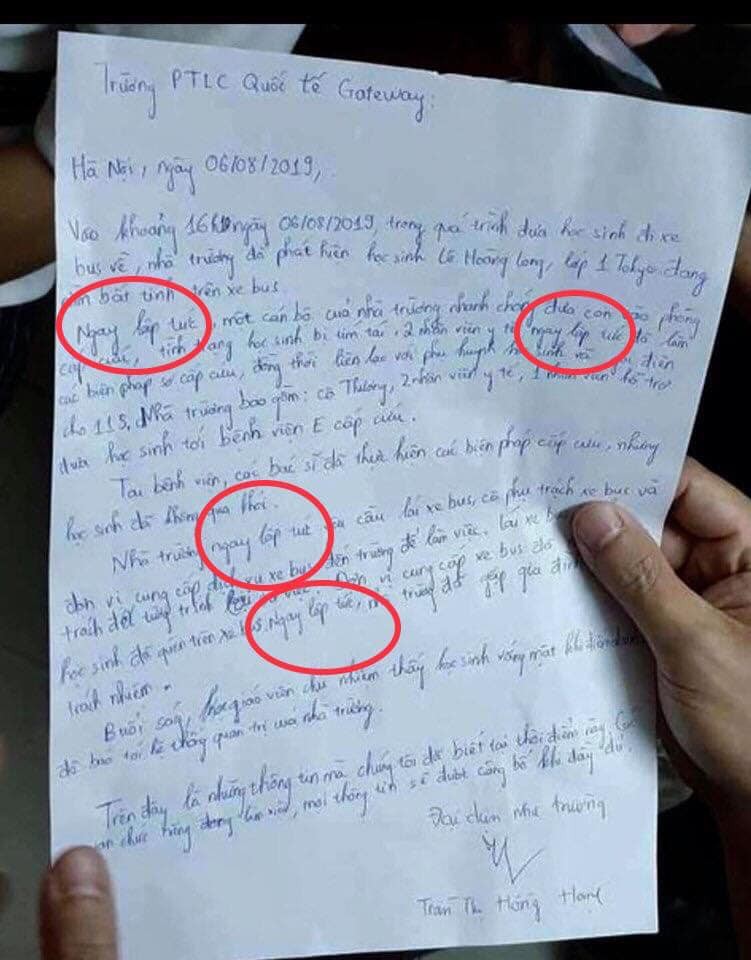 Trường PTLC Quốc tế Gateway:
Hà Nội, ngày 06/08/2019,
Vào khoảng 16h ngày 06/08/2019, trong quá trình đưa học sinh đi xe
bus về, nhà trường đã phát hiện học sinh Lê Hoàng Long, lớp 1 Tokyo đang
nằm bất tỉnh trên xe bus
Ngay lập tức, một cán bộ của nhà trường nhanh chóng đưa con vào phòng
cấp cứu, tình trạng học sinh bị tím tái, 2 nhân viên y tế ngay lập tức đã làm
các biện pháp sơ cấp cứu, đồng thời liên lạc với phụ huynh học sinh và gọi điện
cho 115. Nhà trường bao gồm: cô Thương, 2 nhân viên y tế, 1 nhân viên hỗ trợ
đưa học sinh tới bệnh viện E cấp cứu.
Tại bệnh viện, các bác sĩ đã thực hiện các biện pháp cấp cứu, nhưng
học sinh đã không qua khỏi.
Nhà trường ngay lập tức yêu cầu lái xe bus, cô phụ trách xe bus và
đơn vị cung cấp dịch vụ xe bus đến trường để làm việc. Lái xe
trách để tường trình vụ việc. Đơn vị cung cấp xe bus đã
học sinh đã quên trên xe bus. Ngay lập tức, nhà trường đã gặp gia đình
trách nhiệm.
Buổi sáng, giáo viên chủ nhiệm thấy học sinh vắng mặt khi điểm danh
đã báo tới hệ thống quản trị của nhà trường.
Trên đây là những thông tin mà chúng tôi đã biết tại thời điểm này. Các
chức năng đang làm việc, mọi thông tin sẽ được công bố khi đầy đủ.
Đại diện nhà trường
Trần Thị Hồng Hạnh